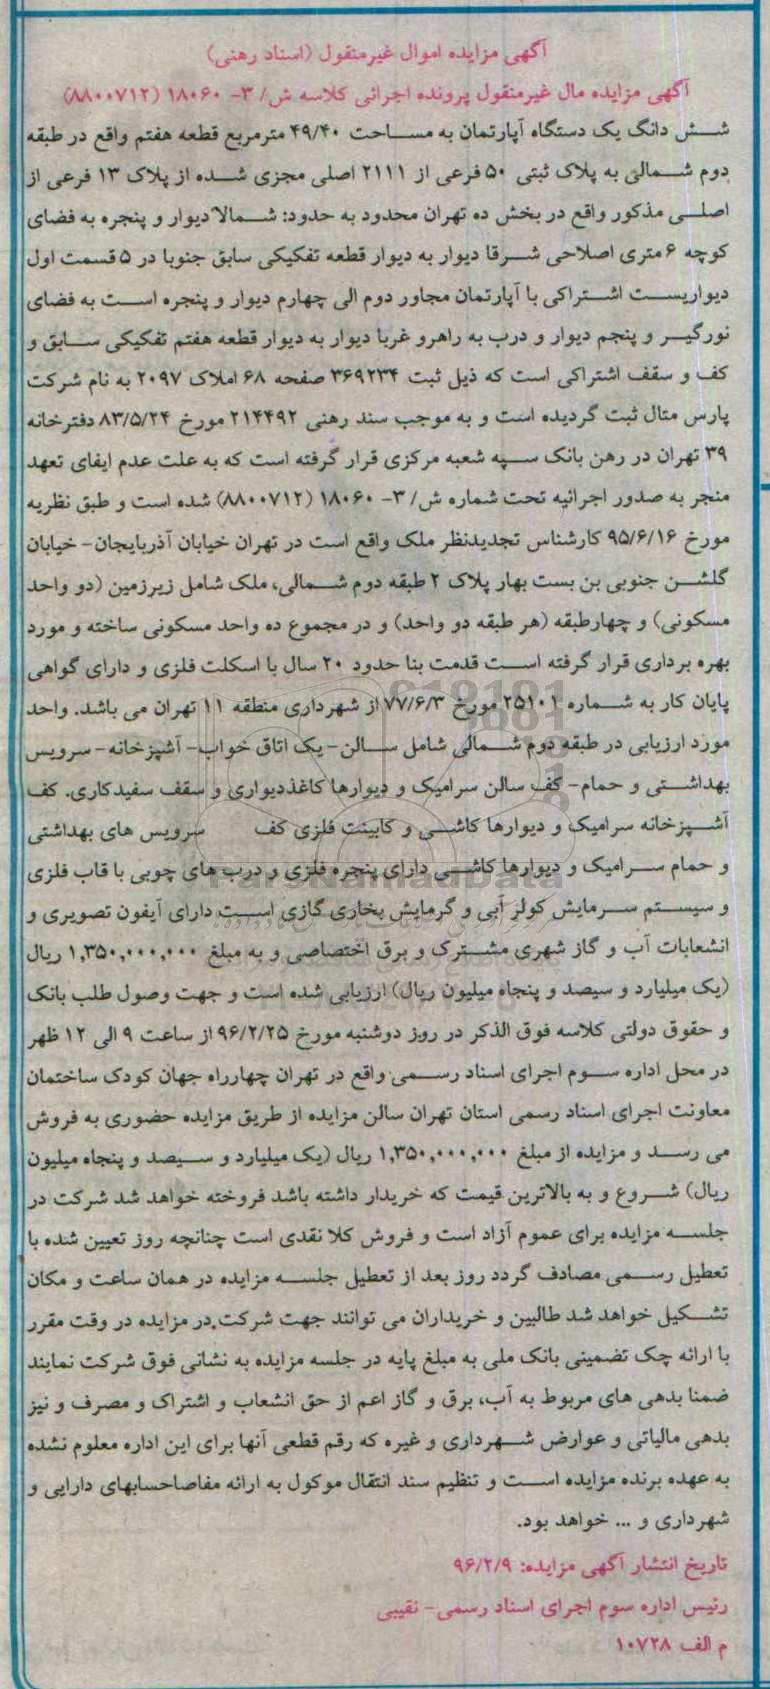 آگهی مزایده اموال غیرمنقول (اسناد رهنی)
آگهی مزایده مال غیرمنقول پرونده اجرائی کلاسه ش/ ۳- ۱۸۰۶۰ (۸۸۰۰۷۱۲)
شش دانگ یک دستگاه آپارتمان به مساحت ۴۹/۴۰ مترمربع قطعه هفتم واقع در طبقه
دوم شمالی به پلاک ثبتی ۵۰ فرعی از ۲۱۱۱ اصلی مجزی شده از پلاک ۱۳ فرعی از
اصلی مذکور واقع در بخش ده تهران محدود به حدود: شمالا دیوار و پنجره به فضای
کوچه ۶ متری اصلاحی شرقا دیوار به دیوار قطعه تفکیکی سابق جنوبا در ۵ قسمت اول
دیواریست اشتراکی با آپارتمان مجاور دوم الی چهارم دیوار و پنجره است به فضای
نورگیر و پنجم دیوار و درب به راهرو غربا دیوار به دیوار قطعه هفتم تفکیکی سابق و
کف و سقف اشتراکی است که ذیل ثبت ۳۶۹۲۳۴ صفحه ۶۸ املاک ۲۰۹۷ به نام شرکت
پارس متال ثبت گردیده است و به موجب سند رهنی ۲۱۴۴۹۲ مورخ ۸۳/۵/۲۴ دفترخانه
۳۹ تهران در رهن بانک سپه شعبه مرکزی قرار گرفته است که به علت عدم ایفای تعهد
منجر به صدور اجرائیه تحت شماره ش/ ۳- ۱۸۰۶۰ (۸۸۰۰۷۱۲) شده است و طبق نظریه
مورخ ۹۵/۶/۱۶ کارشناس تجدیدنظر ملک واقع است در تهران خیابان آذربایجان- خیابان
گلشن جنوبی بن بست بهار پلاک ۲ طبقه دوم شمالی، ملک شامل زیرزمین (دو واحد
مسکونی) و چهارطبقه (هر طبقه دو واحد) و در مجموع ده واحد مسکونی ساخته و مورد
بهره برداری قرار گرفته است قدمت بنا حدود ۲۰ سال با اسکلت فلزی و دارای گواهی
پایان کار به شماره ۲۵۱۰۱ مورخ ۷۷/۶/۳ از شهرداری منطقه ۱۱ تهران می باشد. واحد
مورد ارزیابی در طبقه دوم شمالی شامل سالن- یک اتاق خواب- آشپزخانه- سرویس
بهداشتی و حمام- کف سالن سرامیک و دیوارها کاغذدیواری و سقف سفیدکاری. کف
آشپزخانه سرامیک و دیوارها کاشی و کابینت فلزی کف سرویس های بهداشتی
و حمام سرامیک و دیوارها کاشی دارای پنجره فلزی و درب های چوبی با قاب فلزی
و سیستم سرمایش کولر آبی و گرمایش بخاری گازی است دارای آیفون تصویری و
انشعابات آب و گاز شهری مشترک و برق اختصاصی و به مبلغ ۱,۳۵۰,۰۰۰,۰۰۰ ریال
(یک میلیارد و سیصد و پنجاه میلیون ریال) ارزیابی شده است و جهت وصول طلب بانک
و حقوق دولتی کلاسه فوق الذکر در روز دوشنبه مورخ ۹۶/۲/۲۵ از ساعت ۹ الی ۱۲ ظهر
در محل اداره سوم اجرای اسناد رسمی واقع در تهران چهارراه جهان کودک ساختمان
معاونت اجرای اسناد رسمی استان تهران سالن مزایده از طریق مزایده حضوری به فروش
می رسد و مزایده از مبلغ ۱,۳۵۰,۰۰۰,۰۰۰ ریال (یک میلیارد و سیصد و پنجاه میلیون
ریال) شروع و به بالاترین قیمت که خریدار داشته باشد فروخته خواهد شد شرکت در
جلسه مزایده برای عموم آزاد است و فروش کلا نقدی است چنانچه روز تعیین شده با
تعطیل رسمی مصادف گردد روز بعد از تعطیل جلسه مزایده در همان ساعت و مکان
تشکیل خواهد شد طالبین و خریداران می توانند جهت شرکت در مزایده در وقت مقرر
با ارائه چک تضمینی بانک ملی به مبلغ پایه در جلسه مزایده به نشانی فوق شرکت نمایند
ضمنا بدهی های مربوط به آب، برق و گاز اعم از حق انشعاب و اشتراک و مصرف و نیز
بدهی مالیاتی و عوارض شهرداری و غیره که رقم قطعی آنها برای این اداره معلوم نشده
به عهده برنده مزایده است و تنظیم سند انتقال موکول به ارائه مفاصاحسابهای دارایی و
شهرداری و ... خواهد بود.
تاریخ انتشار آگهی مزایده: ۹۶/۲/۹
رئیس اداره سوم اجرای اسناد رسمی- نقیبی
م الف ۱۰۷۲۸
ParsNamadData